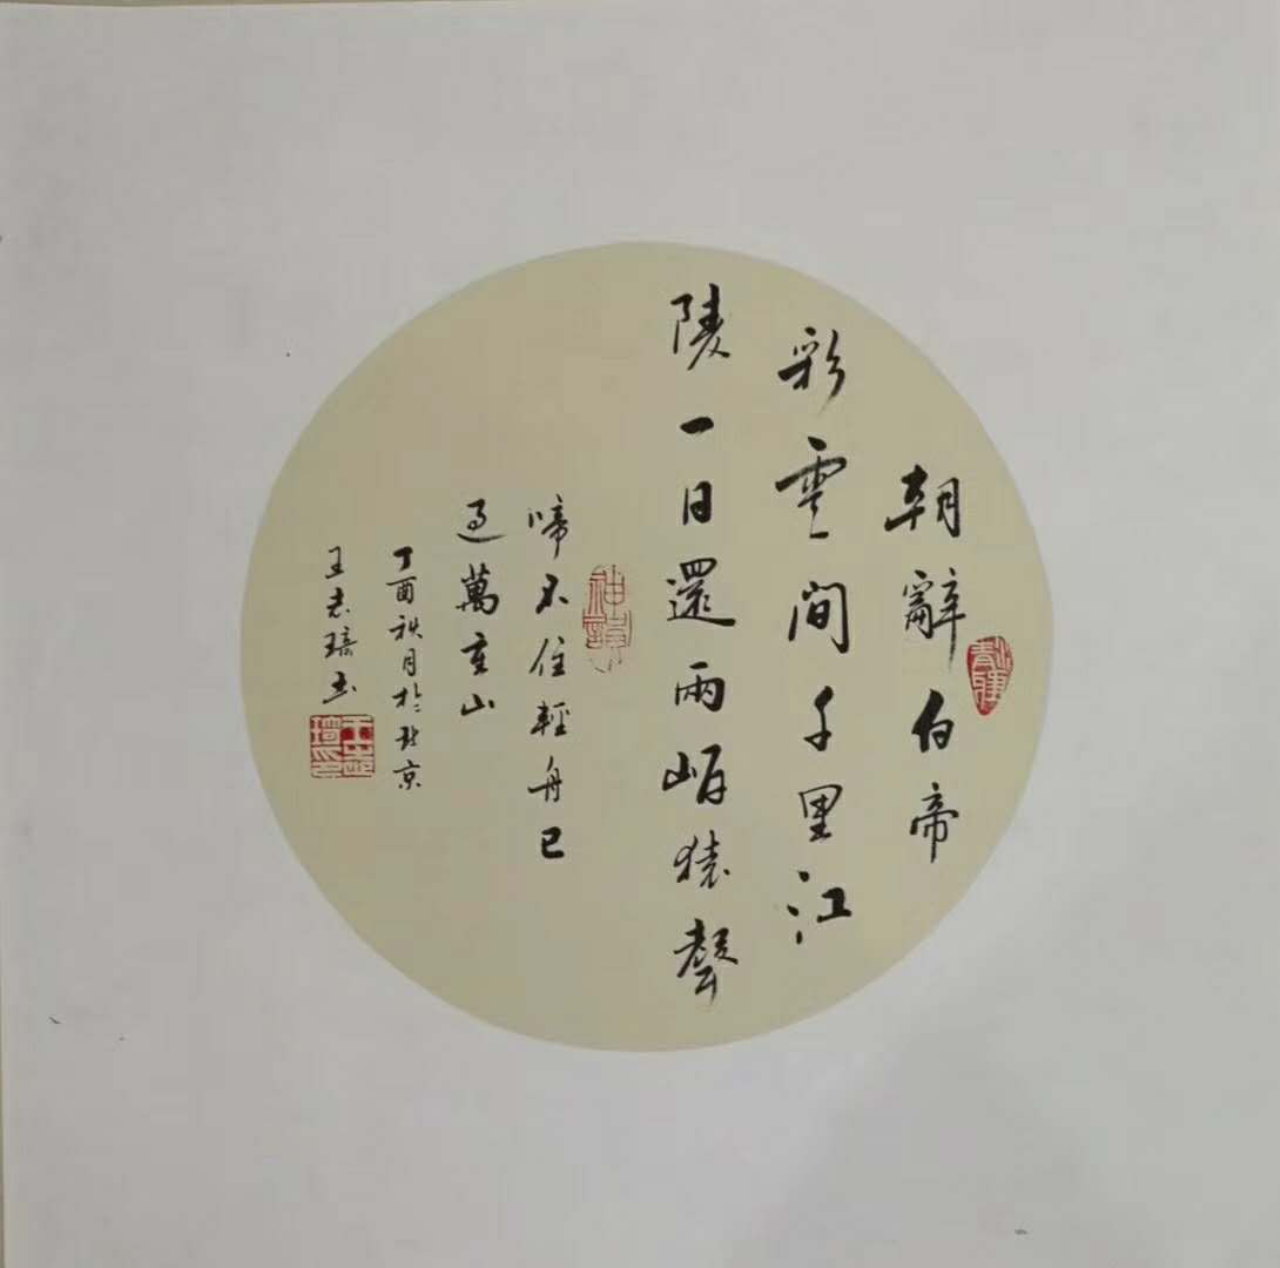 朝辭白帝
彩雲間千里江
陵一日還兩岸猿聲
啼不住輕舟已
過萬重山
丁酉秋月於北京
王志琦书